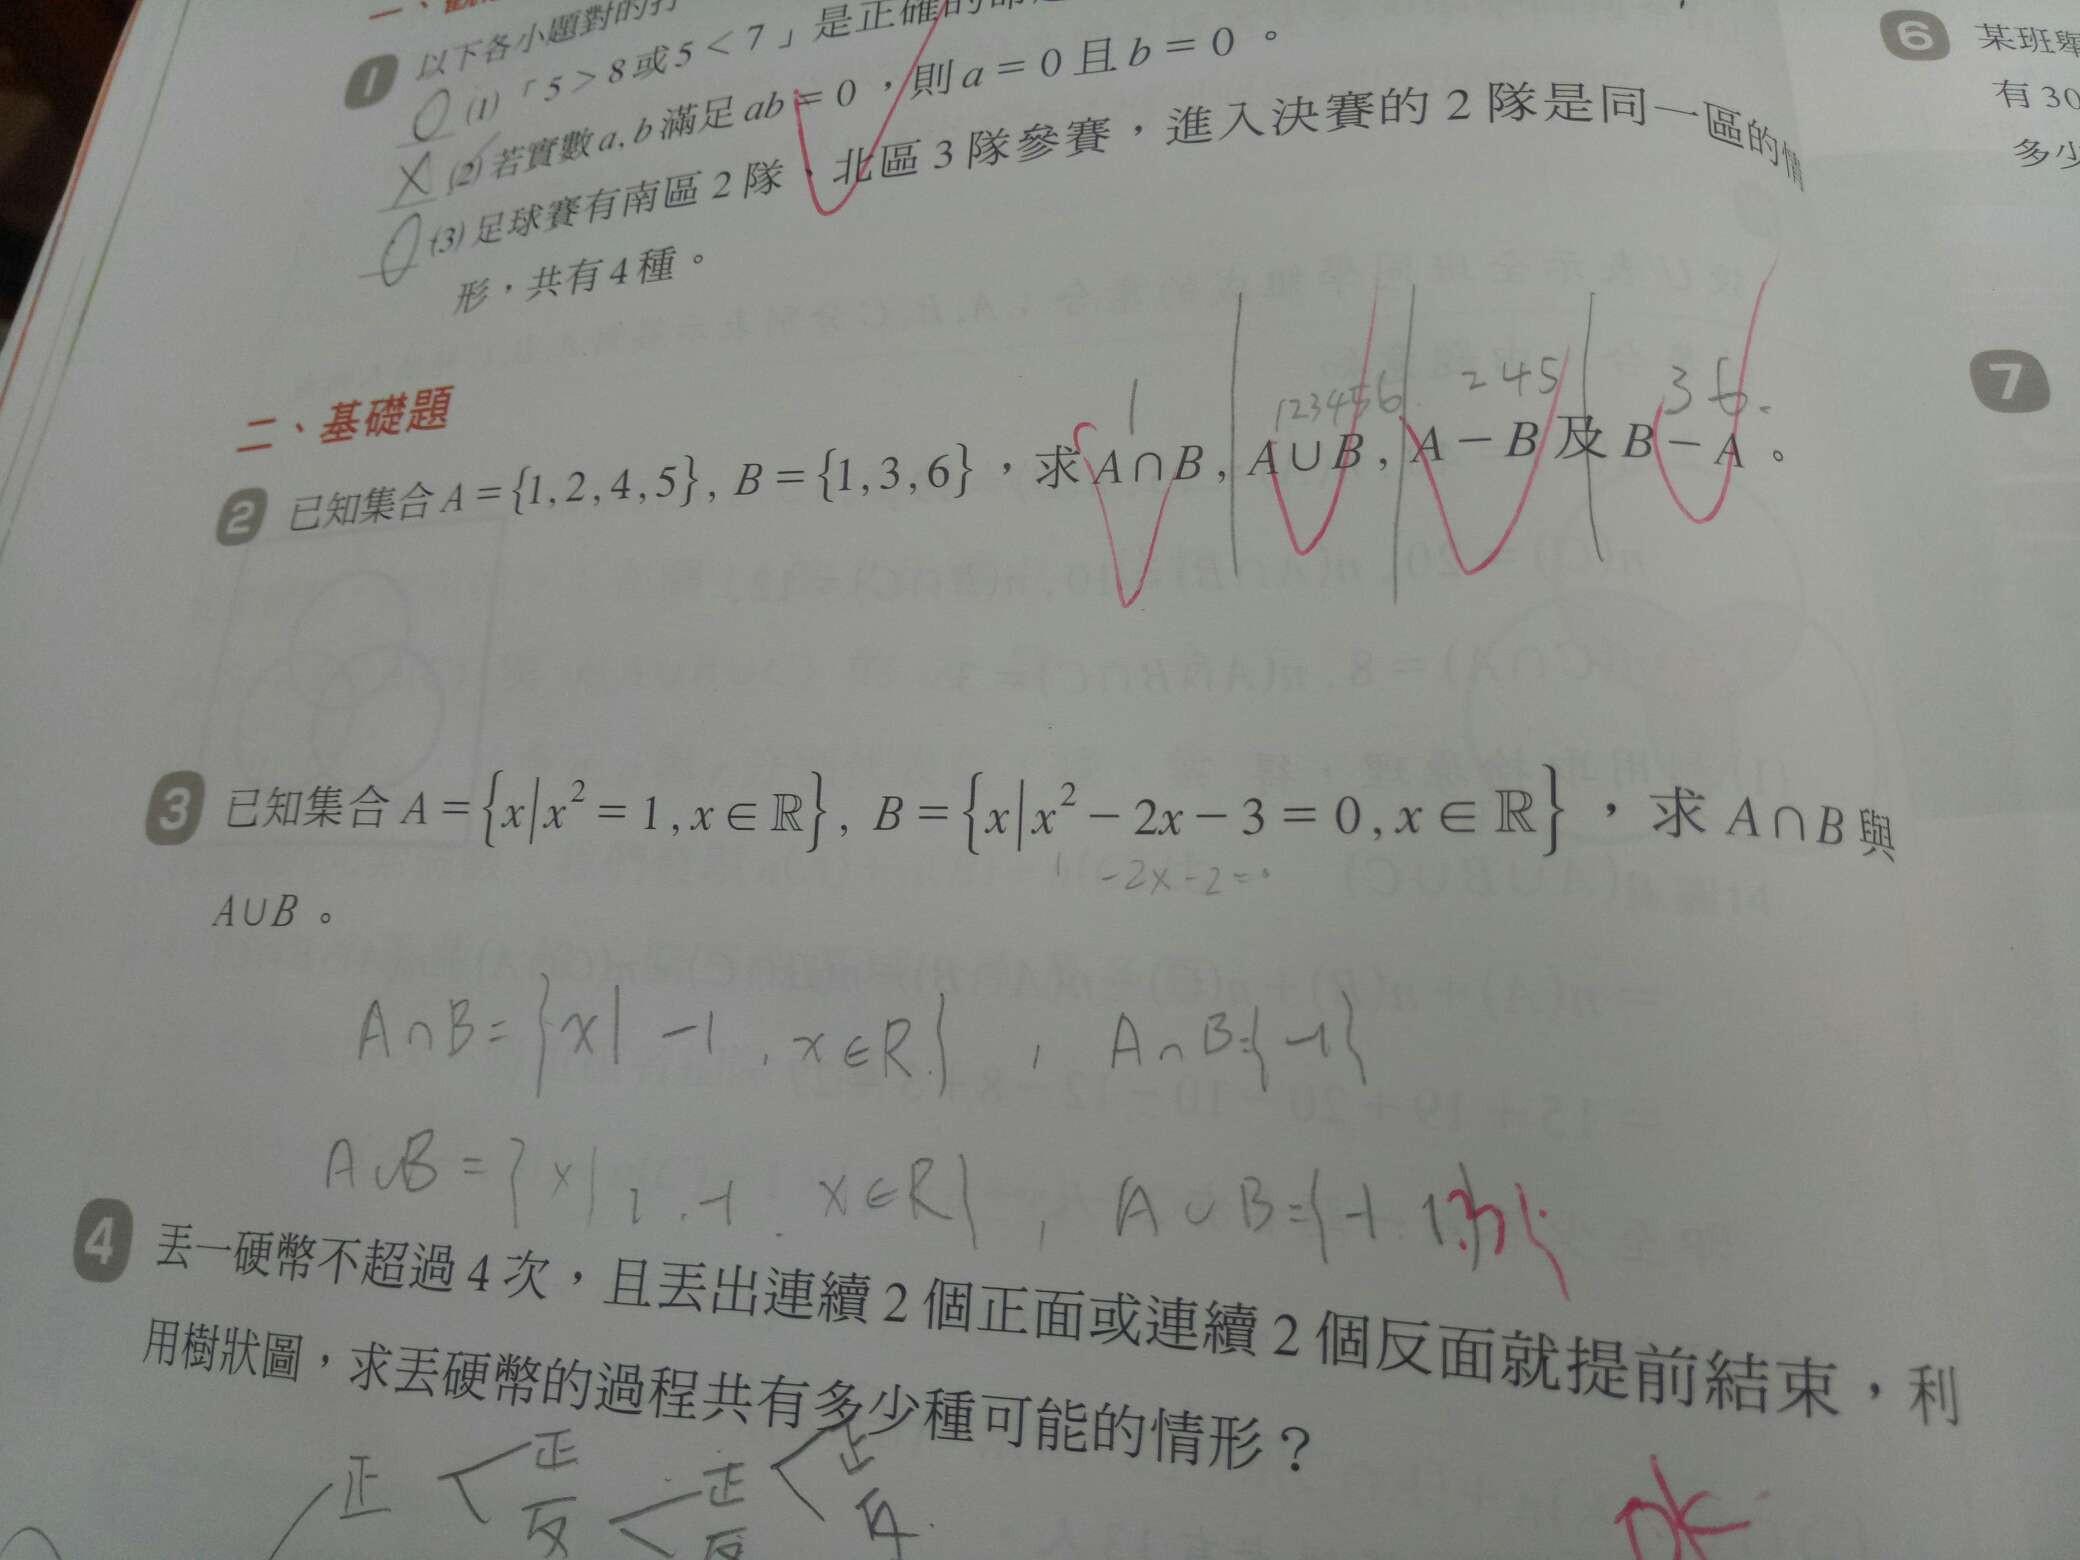 一、觀
1 以下各小題對的打
O (1)「5 > 8 或 5 < 7」是正確的命
X (2) 若實數 a, b 滿足 ab = 0，則 a = 0 且 b = 0。
O (3) 足球賽有南區 2 隊、北區 3 隊參賽，進入決賽的 2 隊是同一區的情
形，共有 4 種。
二、基礎題
1 | 123456 | 245 | 36
2 已知集合 A = {1, 2, 4, 5}, B = {1, 3, 6}，求 A∩B, A∪B, A − B 及 B − A。
3 已知集合 A = {x | x² = 1, x ∈ ℝ}, B = {x | x² − 2x − 3 = 0, x ∈ ℝ}，求 A∩B 與
1 -2x-2=0
A∪B。
A∩B = {x | -1, x∈R}, A∩B={-1}
A∪B = {x | 1, -1 x∈R}, A∪B={-1 1,3}
4 丟一硬幣不超過 4 次，且丟出連續 2 個正面或連續 2 個反面就提前結束，利
用樹狀圖，求丟硬幣的過程共有多少種可能的情形？
正 正 正 正
反 反 反
ok
6 某班舉
有 30
多少
7